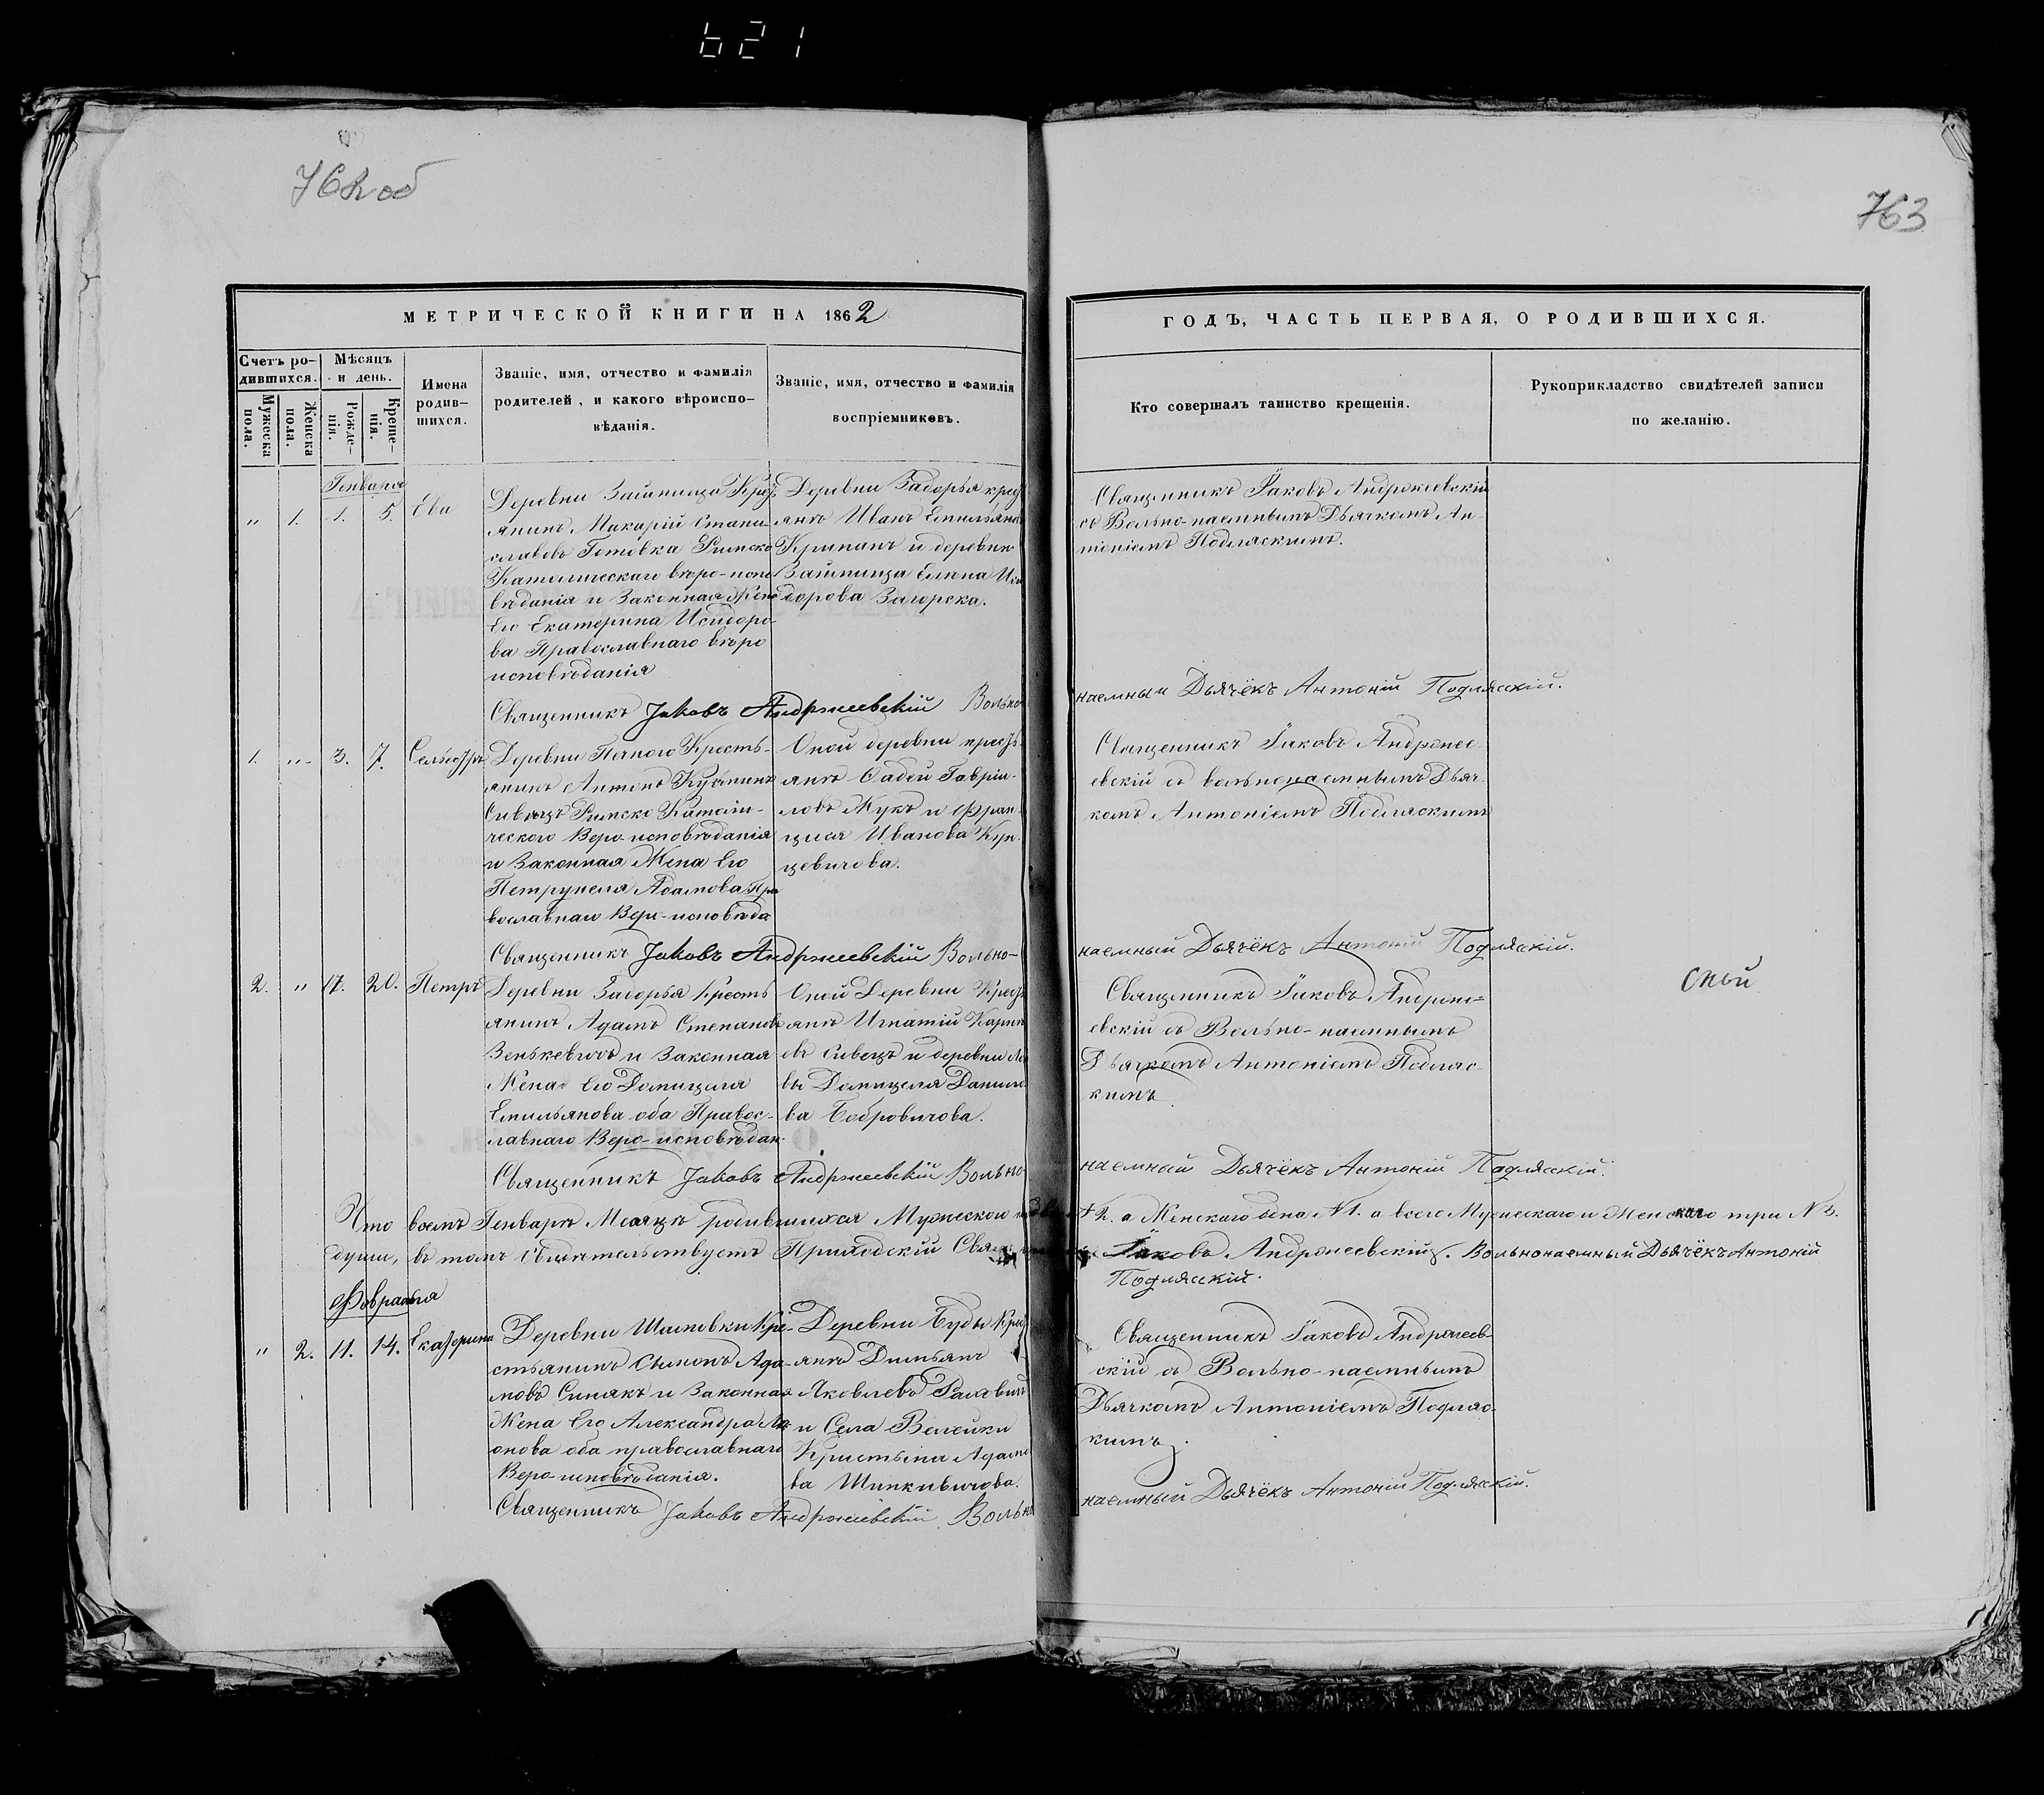 621
762 об
763
МЕТРИЧЕСКОЙ КНИГИ НА 1862
ГОДЪ, ЧАСТЬ ПЕРВАЯ, О РОДИВШИХСЯ.
Счетъ ро-
дившихся.
Мужеска
пола.
Женска
пола.
Мѣсяцъ
и день.
Рожде-
нія.
Креще-
нія.
Имена
родив-
шихся.
Званіе, имя, отчество и фамилія
родителей, и какого вѣроиспо-
вѣданія.
Званіе, имя, отчество и фамилія
воспріемниковъ.
Кто совершалъ таинство крещенія.
Рукоприкладство свидѣтелей записи
по желанію.
Генваря
" 1. 1. 5. Ева
Деревни
янинъ Макарій Стани
славовъ Готовка Римско
Католическаго вѣро-испо
вѣданія и Законная Жена
Его Екатерина Исидоро
ва Православнаго вѣро
исповѣданія
Деревни Задорья крес
янъ Иванъ Емильянов
и деревни
Елена Иси
дорова Загорска.
Священникъ Іаковъ Андржеевскій
съ Вольно-наемнымъ Дьячкомъ Ан-
тоніемъ Подляскимъ.
Священникъ Јаковъ Андржеевскій Вольно
наемный Дьячёкъ Антоній Подляскій.
1. " 3. 7.
Деревни Кресть-
янинъ Антонъ
Сивецъ Римско Католи-
ческого Веро-исповѣданія
и Законная Жена Его
Петрунеля Адамова Пра
вославнаго Веро-исповѣда
Оной деревни кресть
янъ Фадей Гаврі-
ловъ Жукъ и Фран-
циея Иванова Кун-
цевичова.
Священникъ Іаковъ Андрже-
евскій съ вольнонаемнымъ Дьяч-
комъ Антоніемъ Подляскимъ
Священникъ Јаковъ Андржеевскій Вольно-
наемный Дьячёкъ Антоній Подляскій.
2. " 17. 20. Петръ
Деревни Задорья Кресть
янинъ Адамъ Степановъ
Зенькевичъ и Законная
Жена Его Домицеля
Емильянова оба Правос-
лавнаго Веро-исповѣдан.
Оной Деревни Крес
янъ Игнатій
Сивецъ и деревни
вы Домицеля Данило
ва Бобровичова.
Священникъ Іаковъ Андрже-
евскій съ Вольно-наемнымъ
Дьячкомъ Антоніемъ Подляс-
кимъ
Священникъ Јаковъ Андржеевскій Вольно-
наемный Дьячёкъ Антоній Подляскій.
Что воемъ Генварѣ Месяцѣ родившихся Мужеского
№ 2. а Женскаго пола № 1. а всего Мужескаго и Женскаго три № 3.
души, въ томъ Свидѣтельствуетъ Приходскій
Іаковъ Андржеевскій. Вольнонаемный Дьячёкъ Антоній
Подляскій.
Февраля
" 2. 11. 14. Екатерина
Деревни Кре-
стьянинъ Сымонъ Ада-
мовъ Синякъ и Законная
Жена Его Александра
онова оба православнаго
Веро-исповѣданія.
Деревни Буды Кре
янъ Дитьянъ
Яковлевъ
и Села Велейки
Кристына Адамо
ва Шипкивичова.
Священникъ Іаковъ Андржеев-
скій съ Вольно-наемнымъ
Дьячкомъ Антоніемъ Подляс-
кимъ.
Священникъ Јаковъ Андржеевскій Вольно
наемный Дьячёкъ Антоній Подляскій.